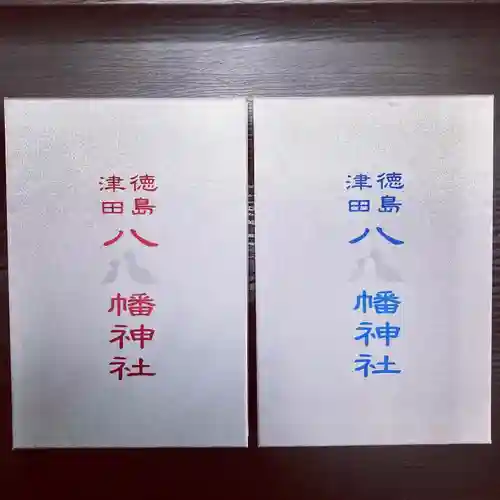 徳島
津田
八幡神社
徳島
津田
八幡神社